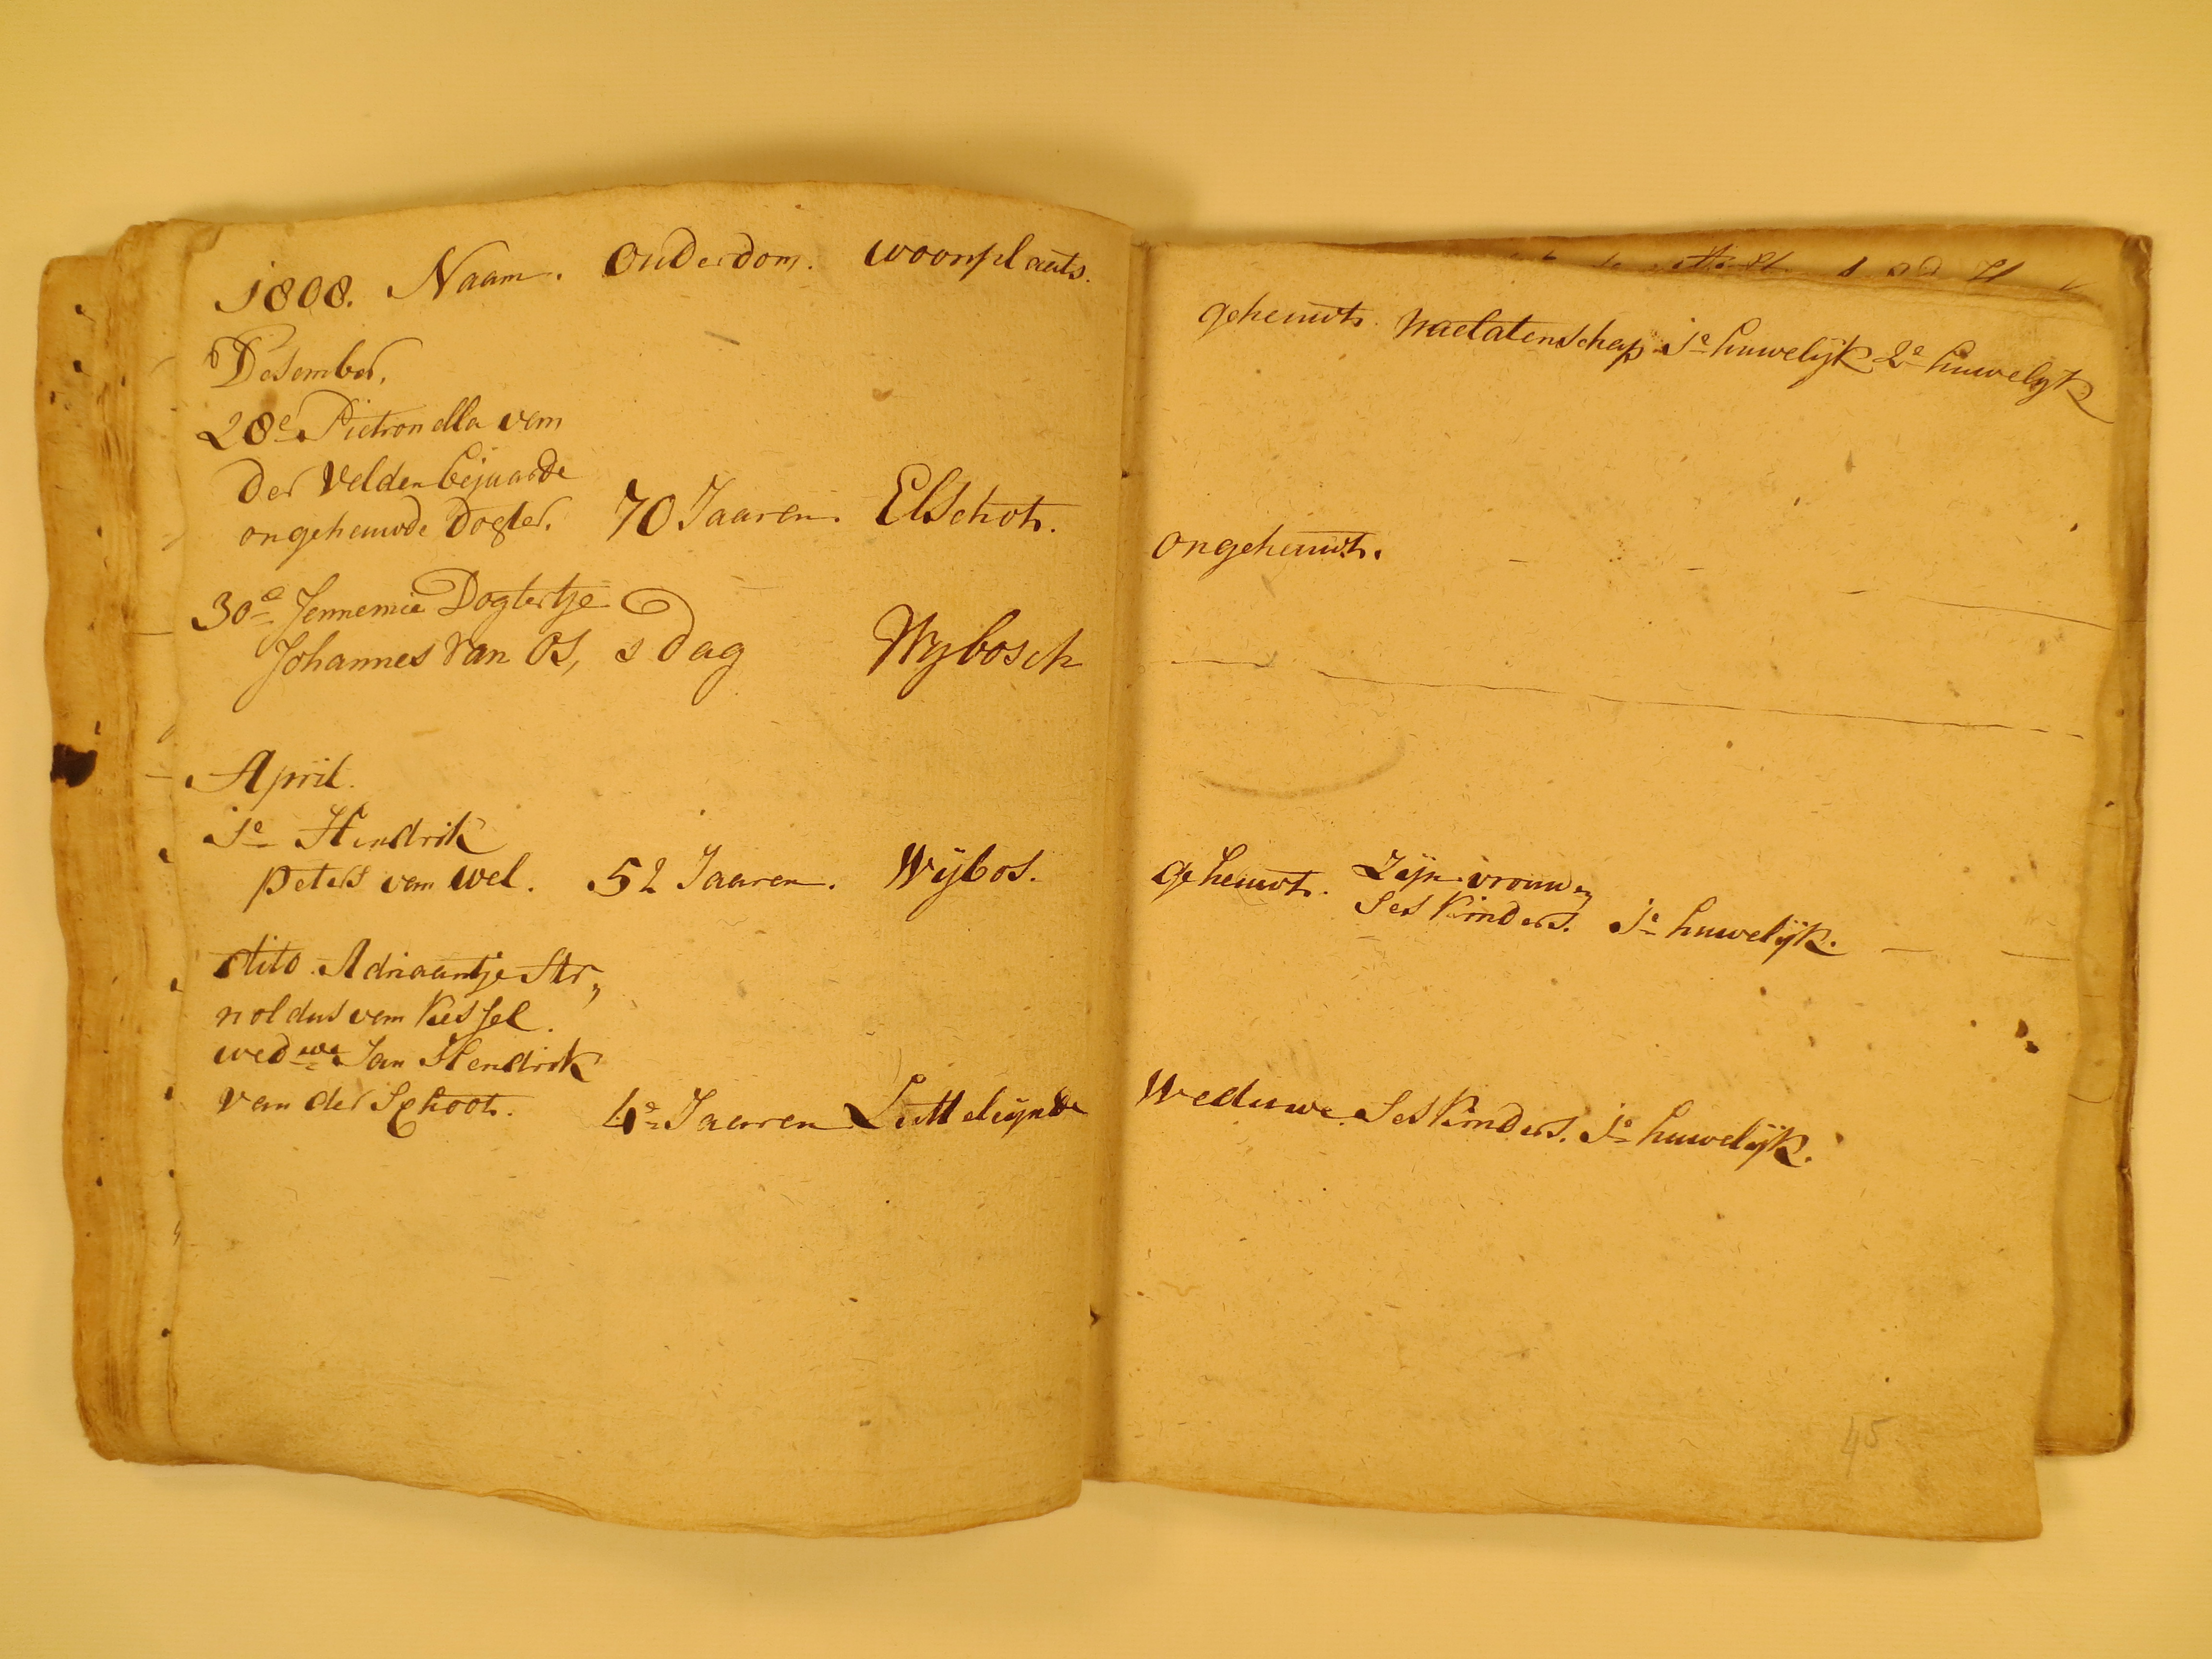 1808. Naam. Ouderdom. woonplaats.
Desember.
28e Pietronella van
der Velden bejaarde
ongehuwde Dogter. 70 Jaaren. Elschot.
30e Jennemie Dogtertje
Johannes van Os, 1 Dag Wybosch
April.
1e Hendrik
peters van wel. 52 Jaaren. Wijbos.
dito Adriaantje Ar„
noldus van Kessel.
wedwe Jan Hendrik
van der Schoot. 4 Jaaren Luttelijnde
gehuwt. Naelatenschap 1e huwelijk 2e huwelijk
ongehuwt.
gehuwt. Zijn vrouw en
ses kinders. 1e huwelijk.
Weduwe. ses kinders. 1e huwelijk.
45